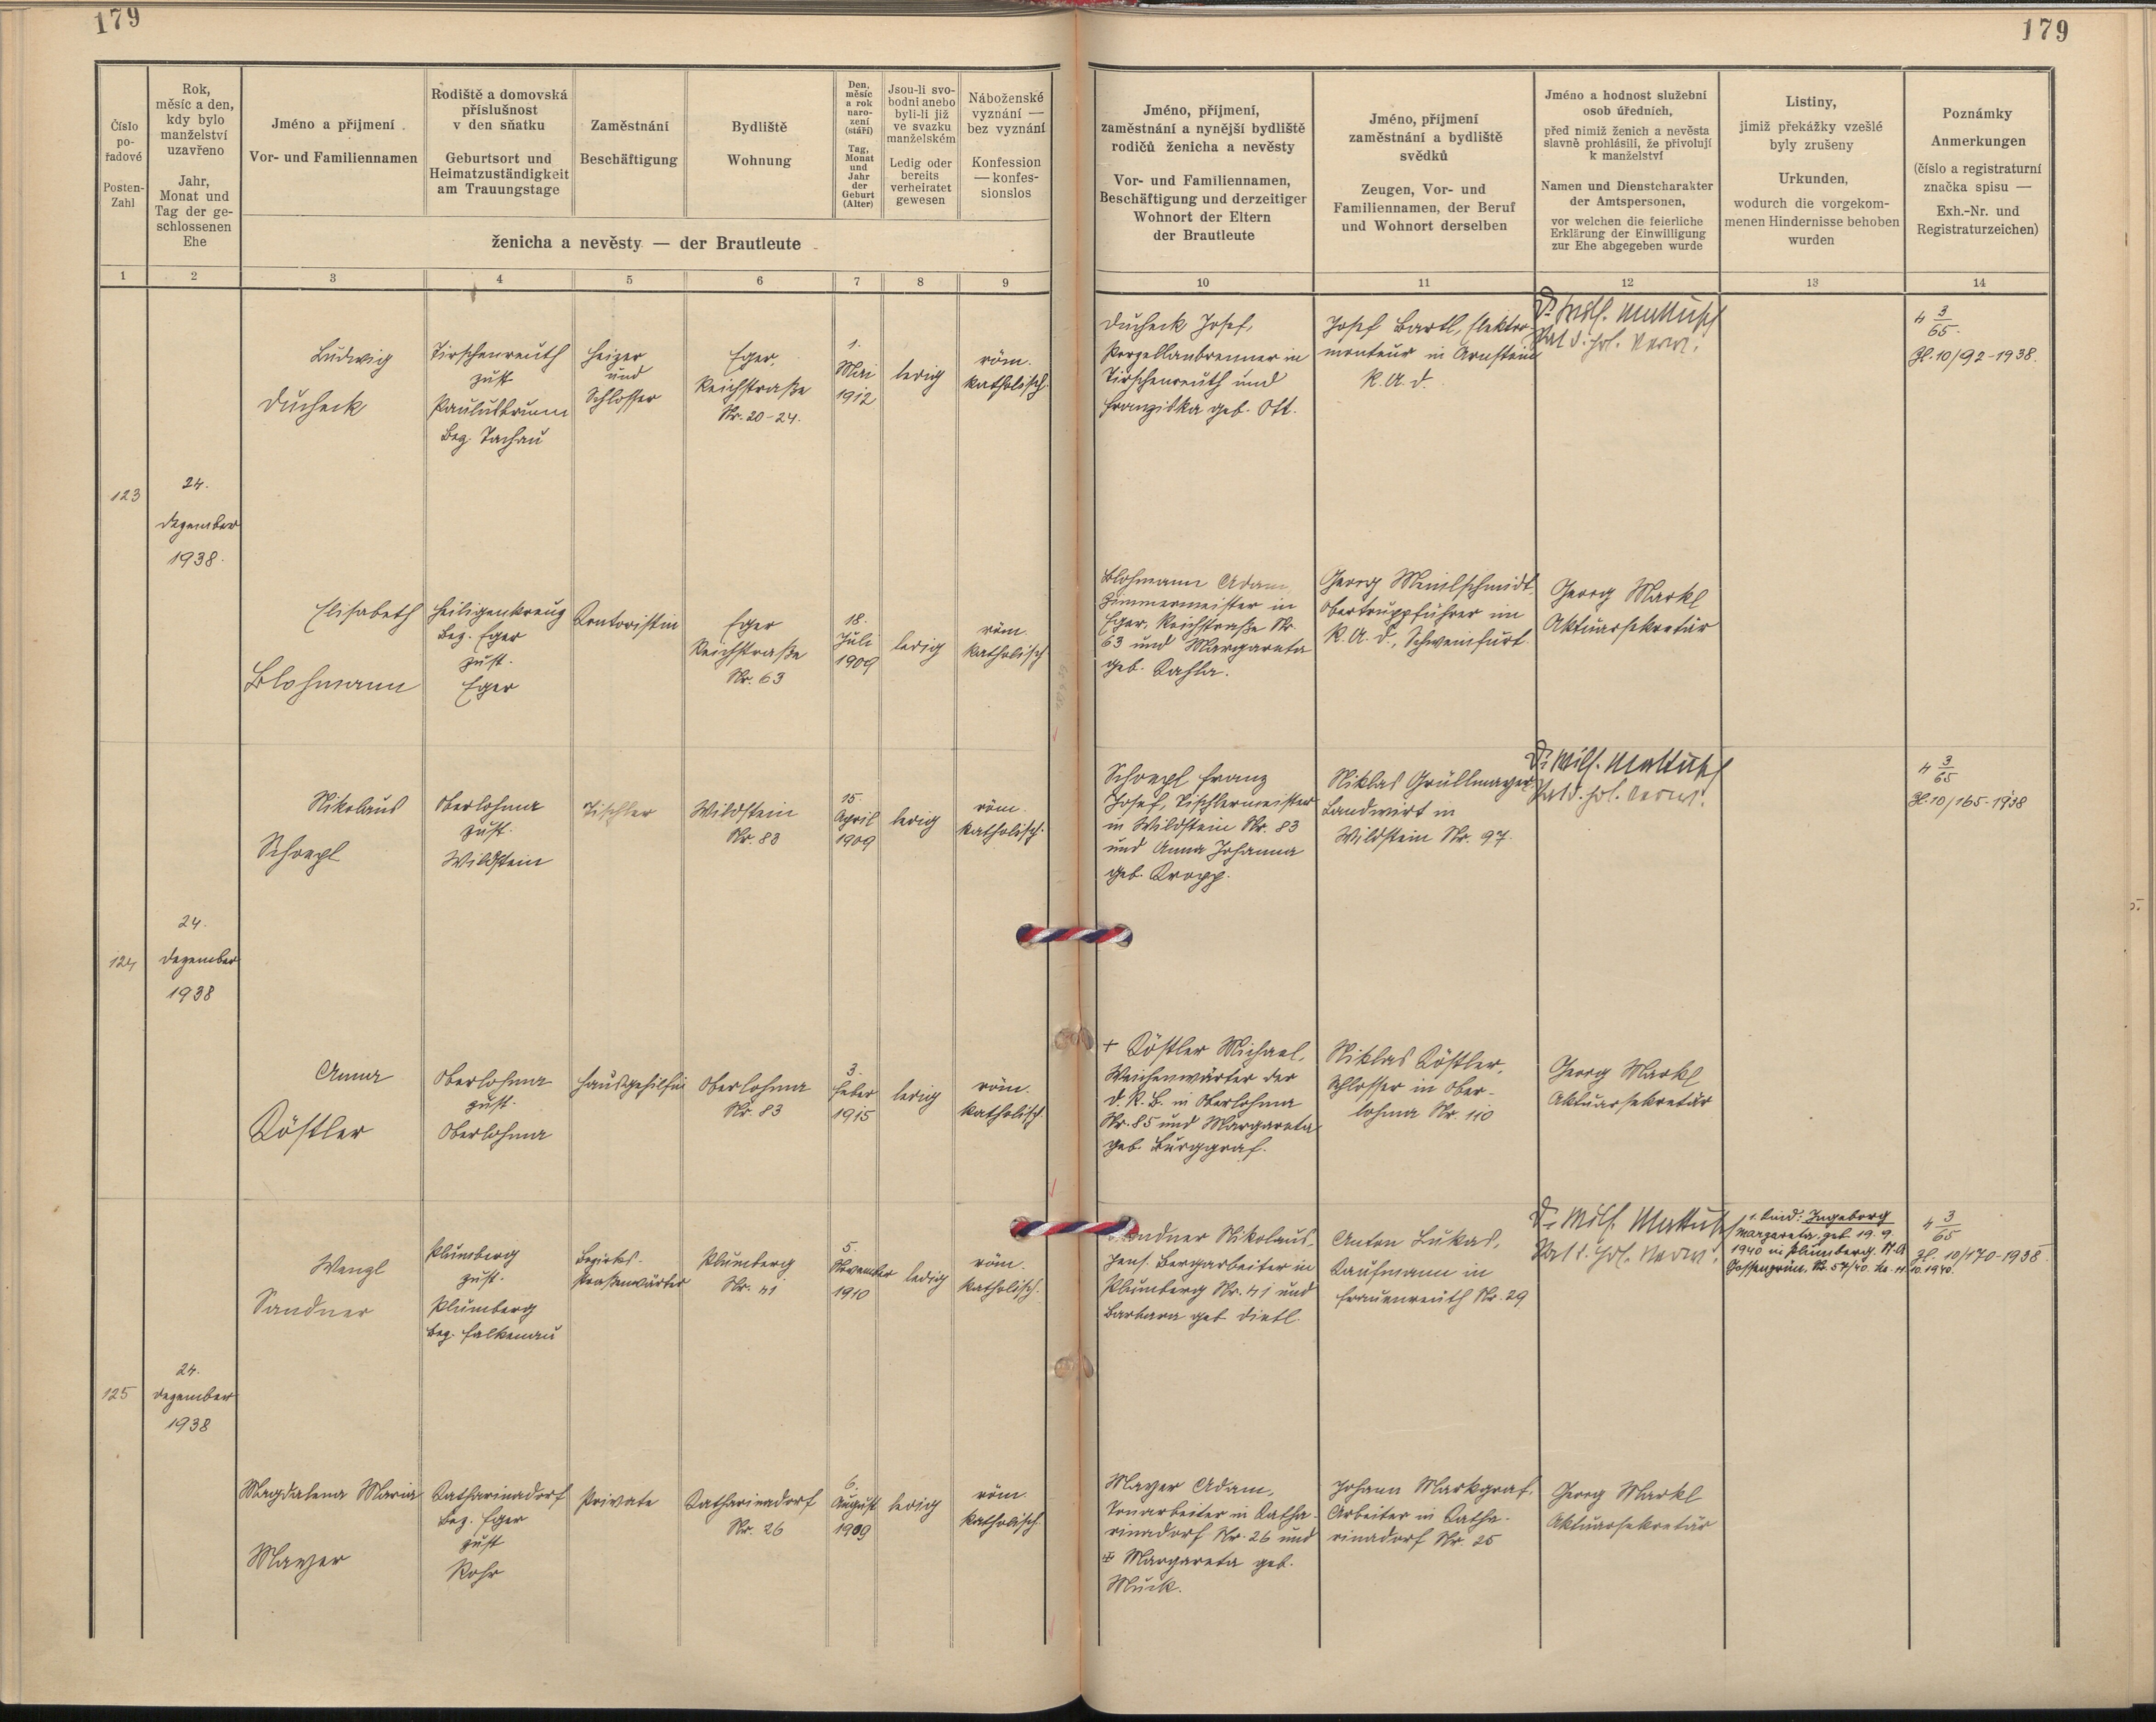 179
179
Číslo pořadové
Posten-Zahl
Rok, měsíc a den, kdy bylo manželství uzavřeno
Jahr, Monat und Tag der geschlossenen Ehe
Jméno a příjmení
Vor- und Familiennamen
Rodiště a domovská příslušnost v den sňatku
Geburtsort und Heimatzuständigkeit am Trauungstage
Zaměstnání
Beschäftigung
Bydliště
Wohnung
Den, měsíc a rok narození (stáří)
Tag, Monat und Jahr der Geburt (Alter)
Jsou-li svobodni anebo byli-li již ve svazku manželském
Ledig oder bereits verheiratet gewesen
Náboženské vyznání — bez vyznání
Konfession — konfessionslos
ženicha a nevěsty — der Brautleute
Jméno, příjmení, zaměstnání a nynější bydliště rodičů ženicha a nevěsty
Vor- und Familiennamen, Beschäftigung und derzeitiger Wohnort der Eltern der Brautleute
Jméno, příjmení zaměstnání a bydliště svědků
Zeugen, Vor- und Familiennamen, der Beruf und Wohnort derselben
Jméno a hodnost služební osob úředních,
před nimiž ženich a nevěsta slavně prohlásili, že přivolují k manželství
Namen und Dienstcharakter der Amtspersonen,
vor welchen die feierliche Erklärung der Einwilligung zur Ehe abgegeben wurde
Listiny,
jimiž překážky vzešlé byly zrušeny
Urkunden,
wodurch die vorgekommenen Hindernisse behoben wurden
Poznámky
Anmerkungen
(číslo a registraturní značka spisu —
Exh.-Nr. und Registraturzeichen)
1 2 3 4 5 6 7 8 9 10 11 12 13 14
123
24.
Dezember
1938.
Ludwig
Ducheck
Tirschenreuth
zust
Paulusbrunn
Bez. Tachau
Heizer
und
Schlosser
Eger,
Reichstraße
Nr. 20-24.
1.
Mai
1912
ledig
röm.
katholisch.
Ducheck Josef,
Porzellanbrenner in
Tirschenreuth und
Franziska geb. Ott.
Josef Bartl, Elektro-
monteur in Arnstein
R.A.D.
4 3/65.
Zl. 10/92-1938.
Elisabeth
Blohmann
Heiligenkreuz
Bez. Eger
zust.
Eger
Kontoristin
Eger
Reichstraße
Nr. 63
18.
Juli
1909
ledig
röm.
katholisch
Blohmann Adam,
Zimmermeister in
Eger, Reichstraße Nr.
63 und Margareta
geb. Kahla.
Georg
Obertruppführer im
R.A.D., Schweinfurt.
Georg Markl
Aktuarsekretär
124
24.
Dezember
1938
Nikolaus
Schoepl
Oberlohma
zust.
Wildstein
Tischler
Wildstein
Nr. 83
15.
April
1909
ledig
röm.
katholisch.
Schoepl Franz
Josef, Tischlermeister
in Wildstein Nr. 83
und Anna Johanna
geb. Kropp.
Niklas Grüllmayer
Landwirt in
Wildstein Nr. 97.
4 3/65
Zl. 10/165-1938
Anna
Köstler
Oberlohma
zust.
Oberlohma
Hausgehilfin
Oberlohma
Nr. 83
3.
Feber
1915
ledig
röm.
katholisch
+ Köstler Michael,
Weichenwärter der
d. R. B. in Oberlohma
Nr. 85 und Margareta
geb. Burggraf.
Niklas Köstler,
Schlosser in Ober-
lohma Nr. 110
Georg Markl
Aktuarsekretär
125
24.
Dezember
1938
Wenzl
Sandner
Plumberg
zust.
Plumberg
Bez. Falkenau
Bezirks-
straßenwärter
Plumberg
Nr. 41
5.
November
1910
ledig
röm.
katholisch.
Sandner Nikolaus,
Pens. Bergarbeiter in
Plumberg Nr. 41 und
Barbara geb. Dietl.
Anton Lukas,
Kaufmann in
Frauenreuth Nr. 29
1. Kind: Ingeborg
Margareta, geb. 19. 9.
1940 in Plumberg. St. A
Gossengrün, Nr. 57/40.
4 3/65
Zl. 10/170-1938.
Magdalena Maria
Mayer
Katharinadorf
Bez. Eger
zust
Rohr
Private
Katharinadorf
Nr. 26
6.
August
1909
ledig
röm.
katholisch.
Mayer Adam,
Tonarbeiter in Katha-
rinadorf Nr. 26 und
+ Margareta geb.
Muck.
Johann Markgraf,
Arbeiter in Katha-
rinadorf Nr. 25
Georg Markl
Aktuarsekretär